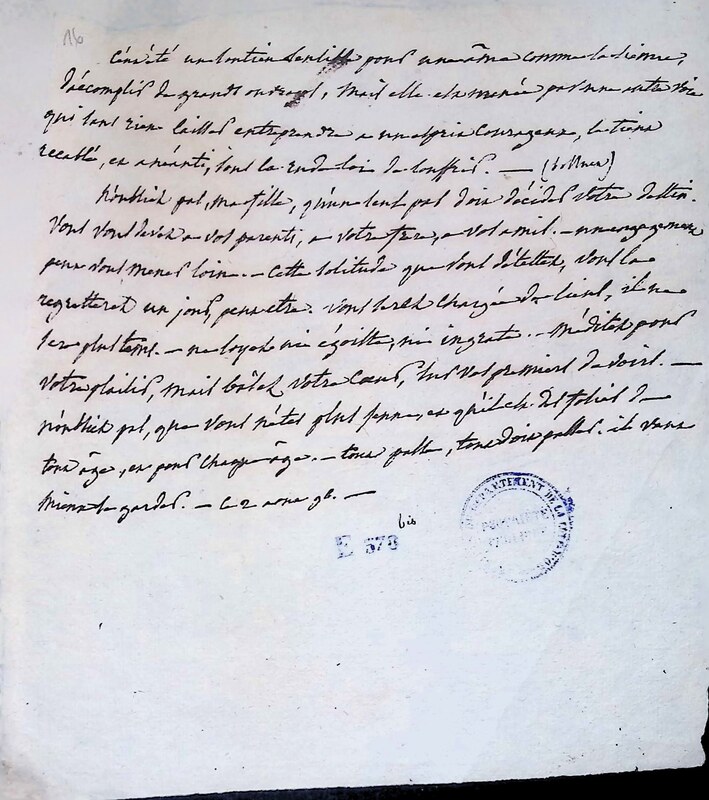 16
C'eut été un soutien sensible pour une âme comme la sienne,
d'accomplir de grands ouvrages, mais elle est menée par une autre voie
qui sans rien laisser entreprendre a un esprit courageux, le tient
recablé, et anéanti, sous la rude loi de souffrir. — (bossuet)
N'oubliez pas, ma fille, qu'un seul pas doit décider votre destin.
Vous vous devez a vos parents, a votre frere, a vos amis. — un engagement
peut vous mener loin. — Cette solitude que vous détestez, vous la
regretterez un jour, peut etre. vous serez chargée de liens, il ne
sera plus tems. — ne soyez ni égoiste, ni ingrate. — Méditez pour
votre plaisir, mais votre Cœur, sur vos premiers devoirs. —
N'oubliez pas, que vous n'êtes plus jeune, et qu'il est des folies de
tout âge, et pour chaque âge. — tout passe, tout doit passer. il vaut
mieux le garder. — Ce 2 aout 96. —
bis
E 578
DEPARTEMENT DE LA
PROPRIÉTÉ
PUBLIQUE